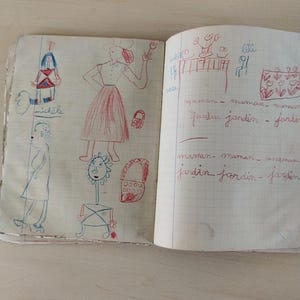 lili
maman - maman - maman
jardin jardin - jardin
maman - maman - maman
jardin - jardin - jardin